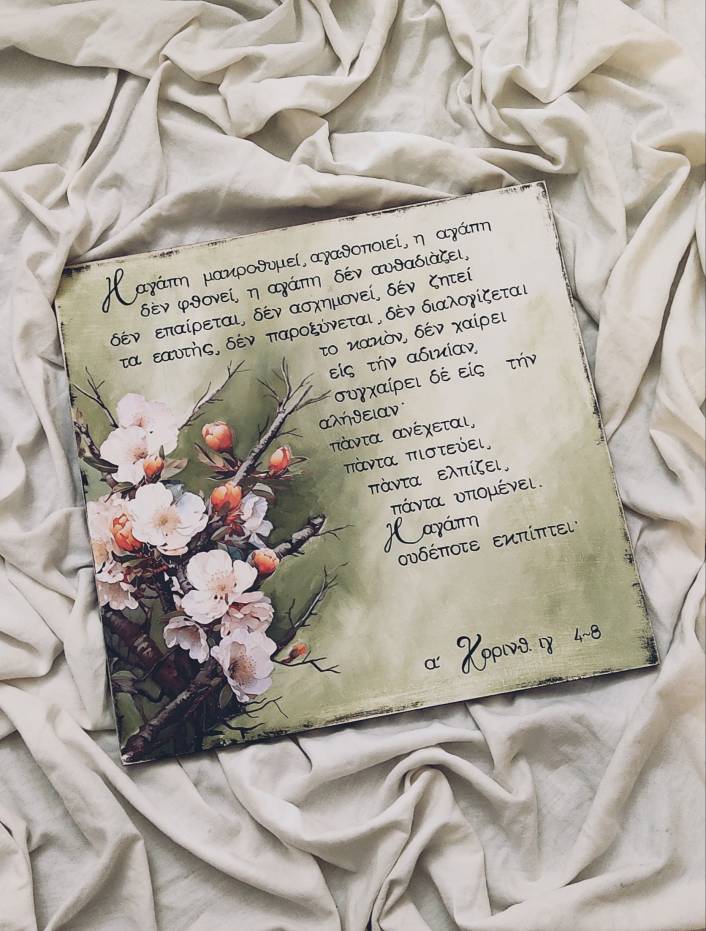 Η αγάπη μακροθυμεί, αγαθοποιεί, η αγάπη
δὲν φθονεί, η αγάπη δέν αυθαδιὰζει,
δέν επαίρεται, δὲν ασχημονεί, δέν ζητεί
τα εαυτὴς, δέν παροξύνεται, δὲν διαλογίζεται
το κακὸν, δέν χαίρει
είς τήν αδικίαν,
συγχαίρει δέ είς τήν
αλήθειαν·
πὰντα ανέχεται,
πὰντα πιστεύει,
πὰντα ελπίζει,
πάντα υπομένει.
Η αγάπη
ουδέποτε εκπίπτει·
α' Κορινθ. ιγ 4~8